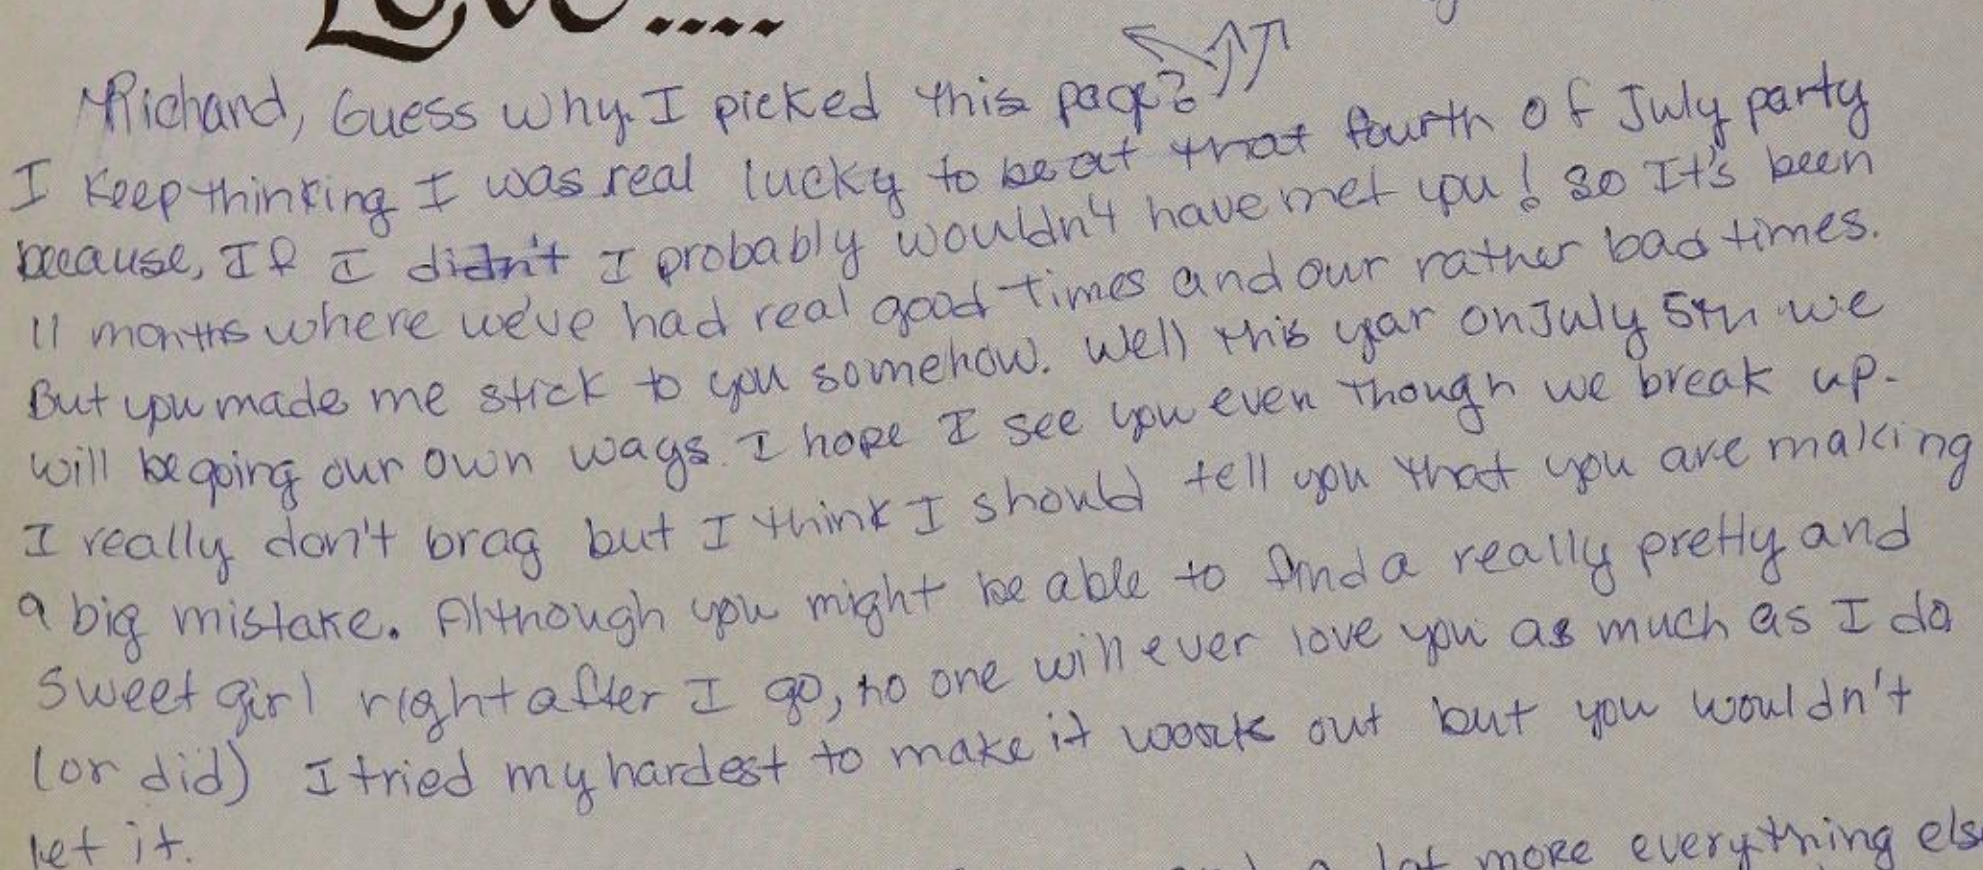 Love....
Richard, Guess why I picked this page?
I keep thinking I was real lucky to be at that fourth of July party
because, If I didn't I probably wouldn't have met you! So It's been
11 months where we've had real good times and our rather bad times.
But you made me stick to you somehow. Well this year on July 5th we
will be going our own ways. I hope I see you even though we break up.
I really don't brag but I think I should tell you that you are making
a big mistake. Although you might be able to find a really pretty and
sweet girl right after I go, no one will ever love you as much as I do
(or did) I tried my hardest to make it work out but you wouldn't
let it.
a lot more everything els